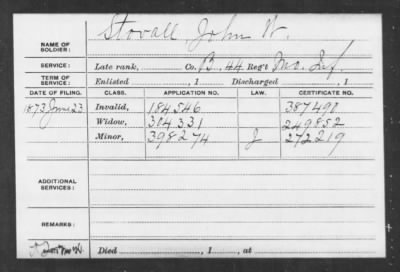 Stovall, John W.
NAME OF SOLDIER:
SERVICE: Late rank, Co. B, 44 Reg't Mo. Inf.
TERM OF SERVICE: Enlisted , 1 Discharged , 1
DATE OF FILING. CLASS. APPLICATION NO. LAW. CERTIFICATE NO.
1873 June 23 Invalid, 184546 387490
Widow, 304331 249852
Minor, 398274 J 272219
ADDITIONAL SERVICES:
REMARKS:
Died , 1 , at